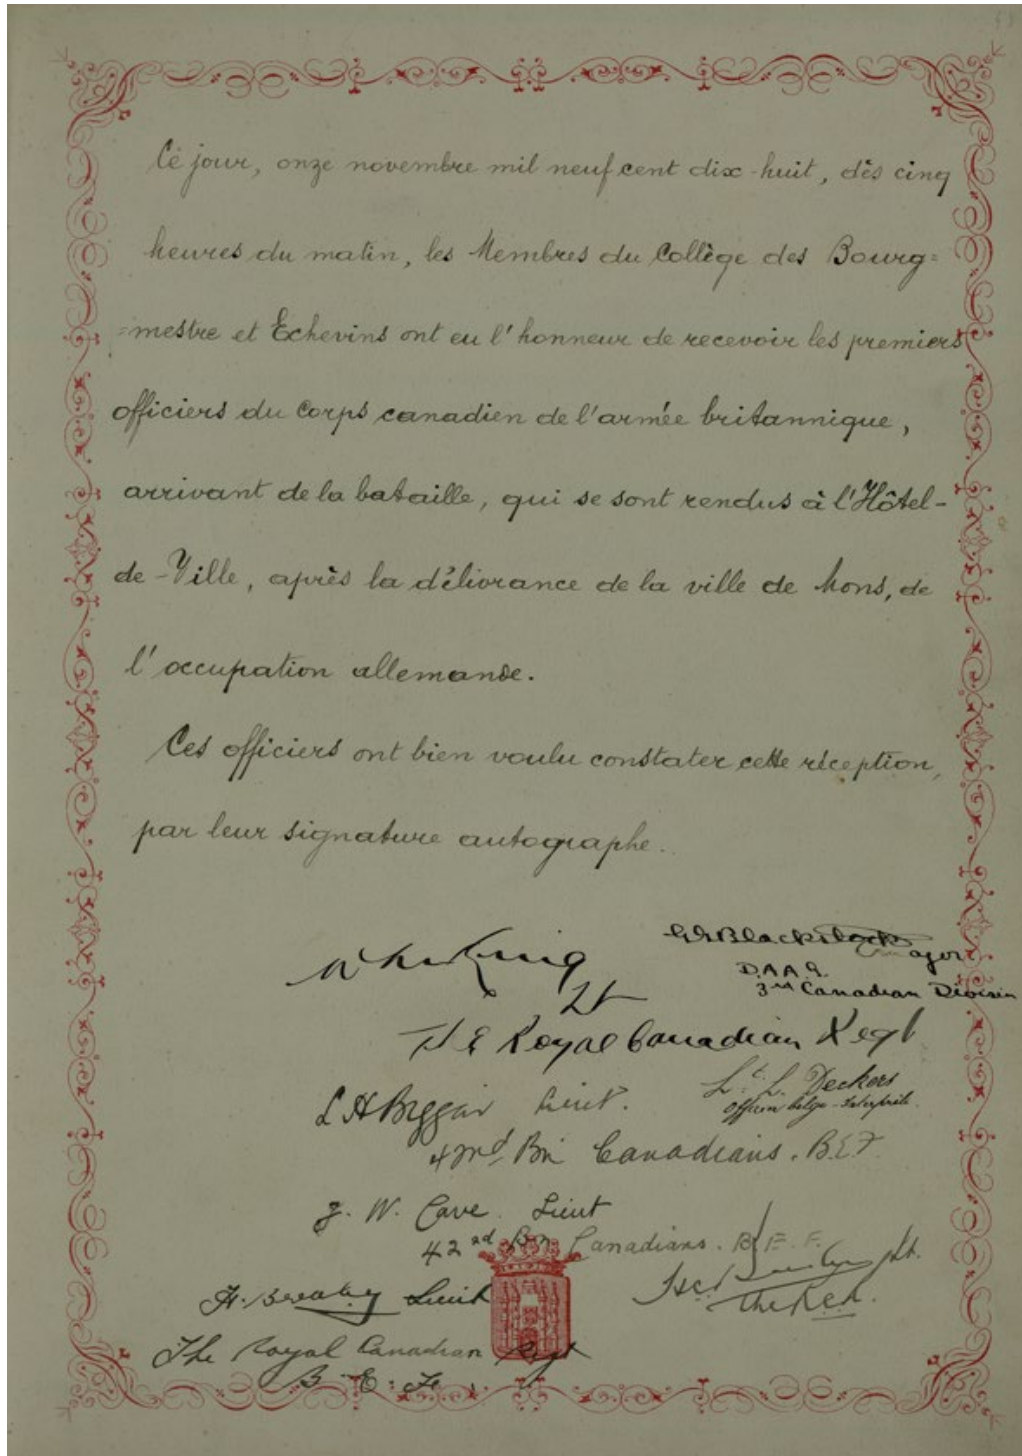 Ce jour, onze novembre mil neuf cent dix-huit, dès cinq
heures du matin, les Membres du Collège des Bourg=
=mestre et Echevins ont eu l'honneur de recevoir les premiers
officiers du Corps canadien de l'armée britannique,
arrivant de la bataille, qui se sont rendus à l'Hôtel-
de-Ville, après la délivrance de la ville de Mons, de
l'occupation allemande.
Ces officiers ont bien voulu constater cette réception,
par leur signature autographe.
King
Lt
Blackstock Major
D.A.A.G.
3rd Canadian Division
The Royal Canadian Regt
L H Biggar Lieut.
Lt. L. Deckers
Officier belge-Interprète
42nd Bn Canadians. B.E.F.
J. W. Cave Lieut
42nd Bn Canadians. B.E.F.
Lieut
Lt.
The R.C.R.
The Royal Canadian Regt
B.E.F.